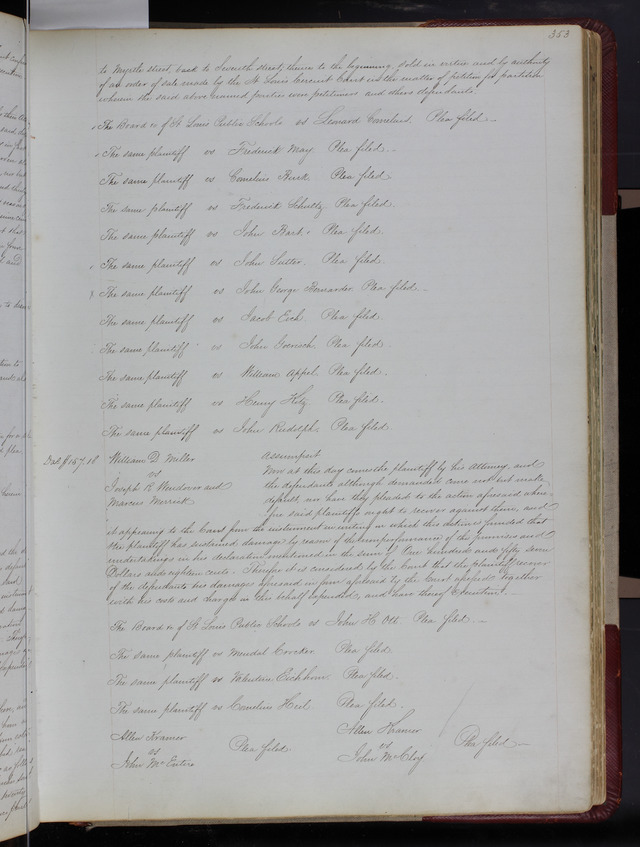 353
to Myrtle street, back to Seventh street, thence to the beginning, sold in virtue and by authority
of an order of sale made by the St Louis Circuit Court in the matter of petition for partition
wherein the said above named parties were petitioners and others defendants.
The Board &c of St Louis Public Schools vs Leonard Plea filed
The same plaintiff vs Frederick May Plea filed
The same plaintiff vs Cornelius Burk Plea filed
The same plaintiff vs Frederick Schultz Plea filed
The same plaintiff vs John Plea filed
The same plaintiff vs John Sutter Plea filed
The same plaintiff vs John George Plea filed
The same plaintiff vs Jacob Eich Plea filed
The same plaintiff vs John Plea filed
The same plaintiff vs William Appel Plea filed
The same plaintiff vs Henry Plea filed
The same plaintiff vs John Rudolph Plea filed
157.18 William D Miller Assumpsit
vs Now at this day comes the plaintiff by his Attorney, and
Joseph R and the defendants although demanded came not but make
Marcus Merrick default, nor have they pleaded to the action aforesaid where
fore said plaintiff ought to recover against them, and
it appearing to the Court from the instrument in writing on which this action is founded that
the plaintiff has sustained damage by reason of the nonperformance of the promises and
undertakings in his declaration mentioned in the sum of One hundred and fifty seven
Dollars and eighteen cents. Therefore it is considered by the Court that the plaintiff recover
of the defendants his damages aforesaid in form aforesaid by the Court assessed together
with his costs and charges in this behalf expended, and have thereof Execution.
The Board &c of St Louis Public Schools vs John H. Ott Plea filed
The same plaintiff vs Plea filed
The same plaintiff vs Valentine Plea filed
The same plaintiff vs Cornelius Plea filed
Allen Kramer Allen Kramer
vs Plea filed vs Plea filed
John McEntire John McCloy